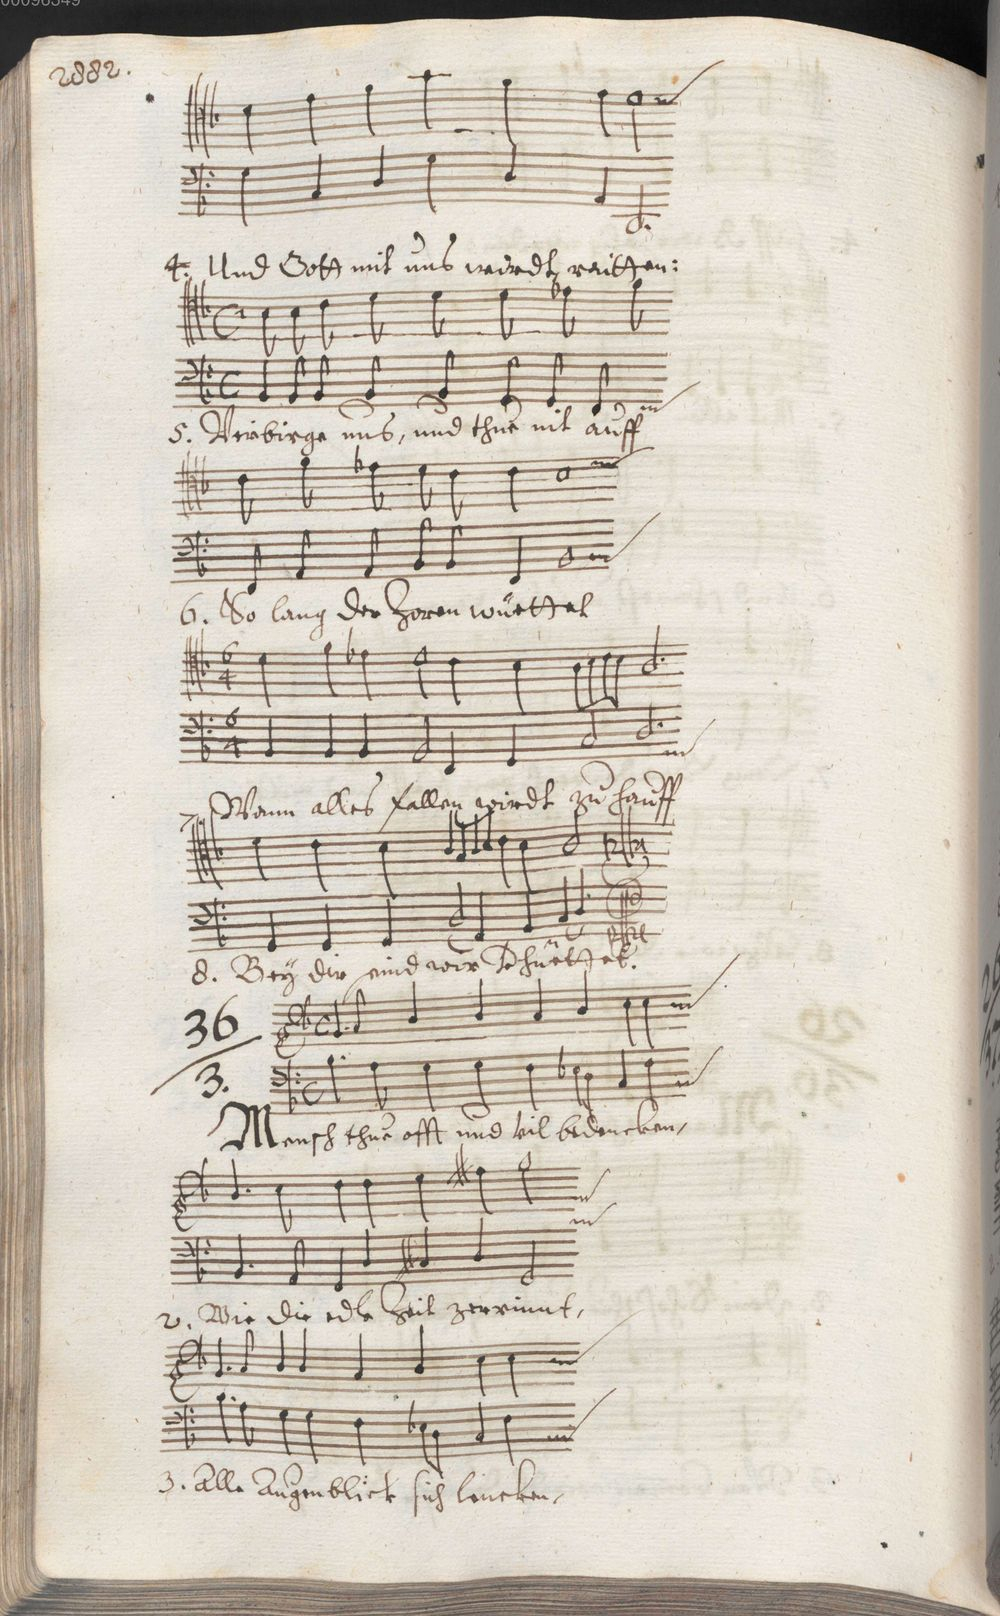 00096349
2882.
4. Und Gott mit uns wirdt raitten:
5. Verbirge uns, und thue nit auff
6. So lang der Zoren wüettet
7. Wann alles fallen wirdt zu hauff
8. Bey dir sind wir behüettet.
36
3.
Mensch thue offt und vil bedencken,
2. Wie die edle Zeit zerrinnt,
3. Alle Augenblick sich lencken,